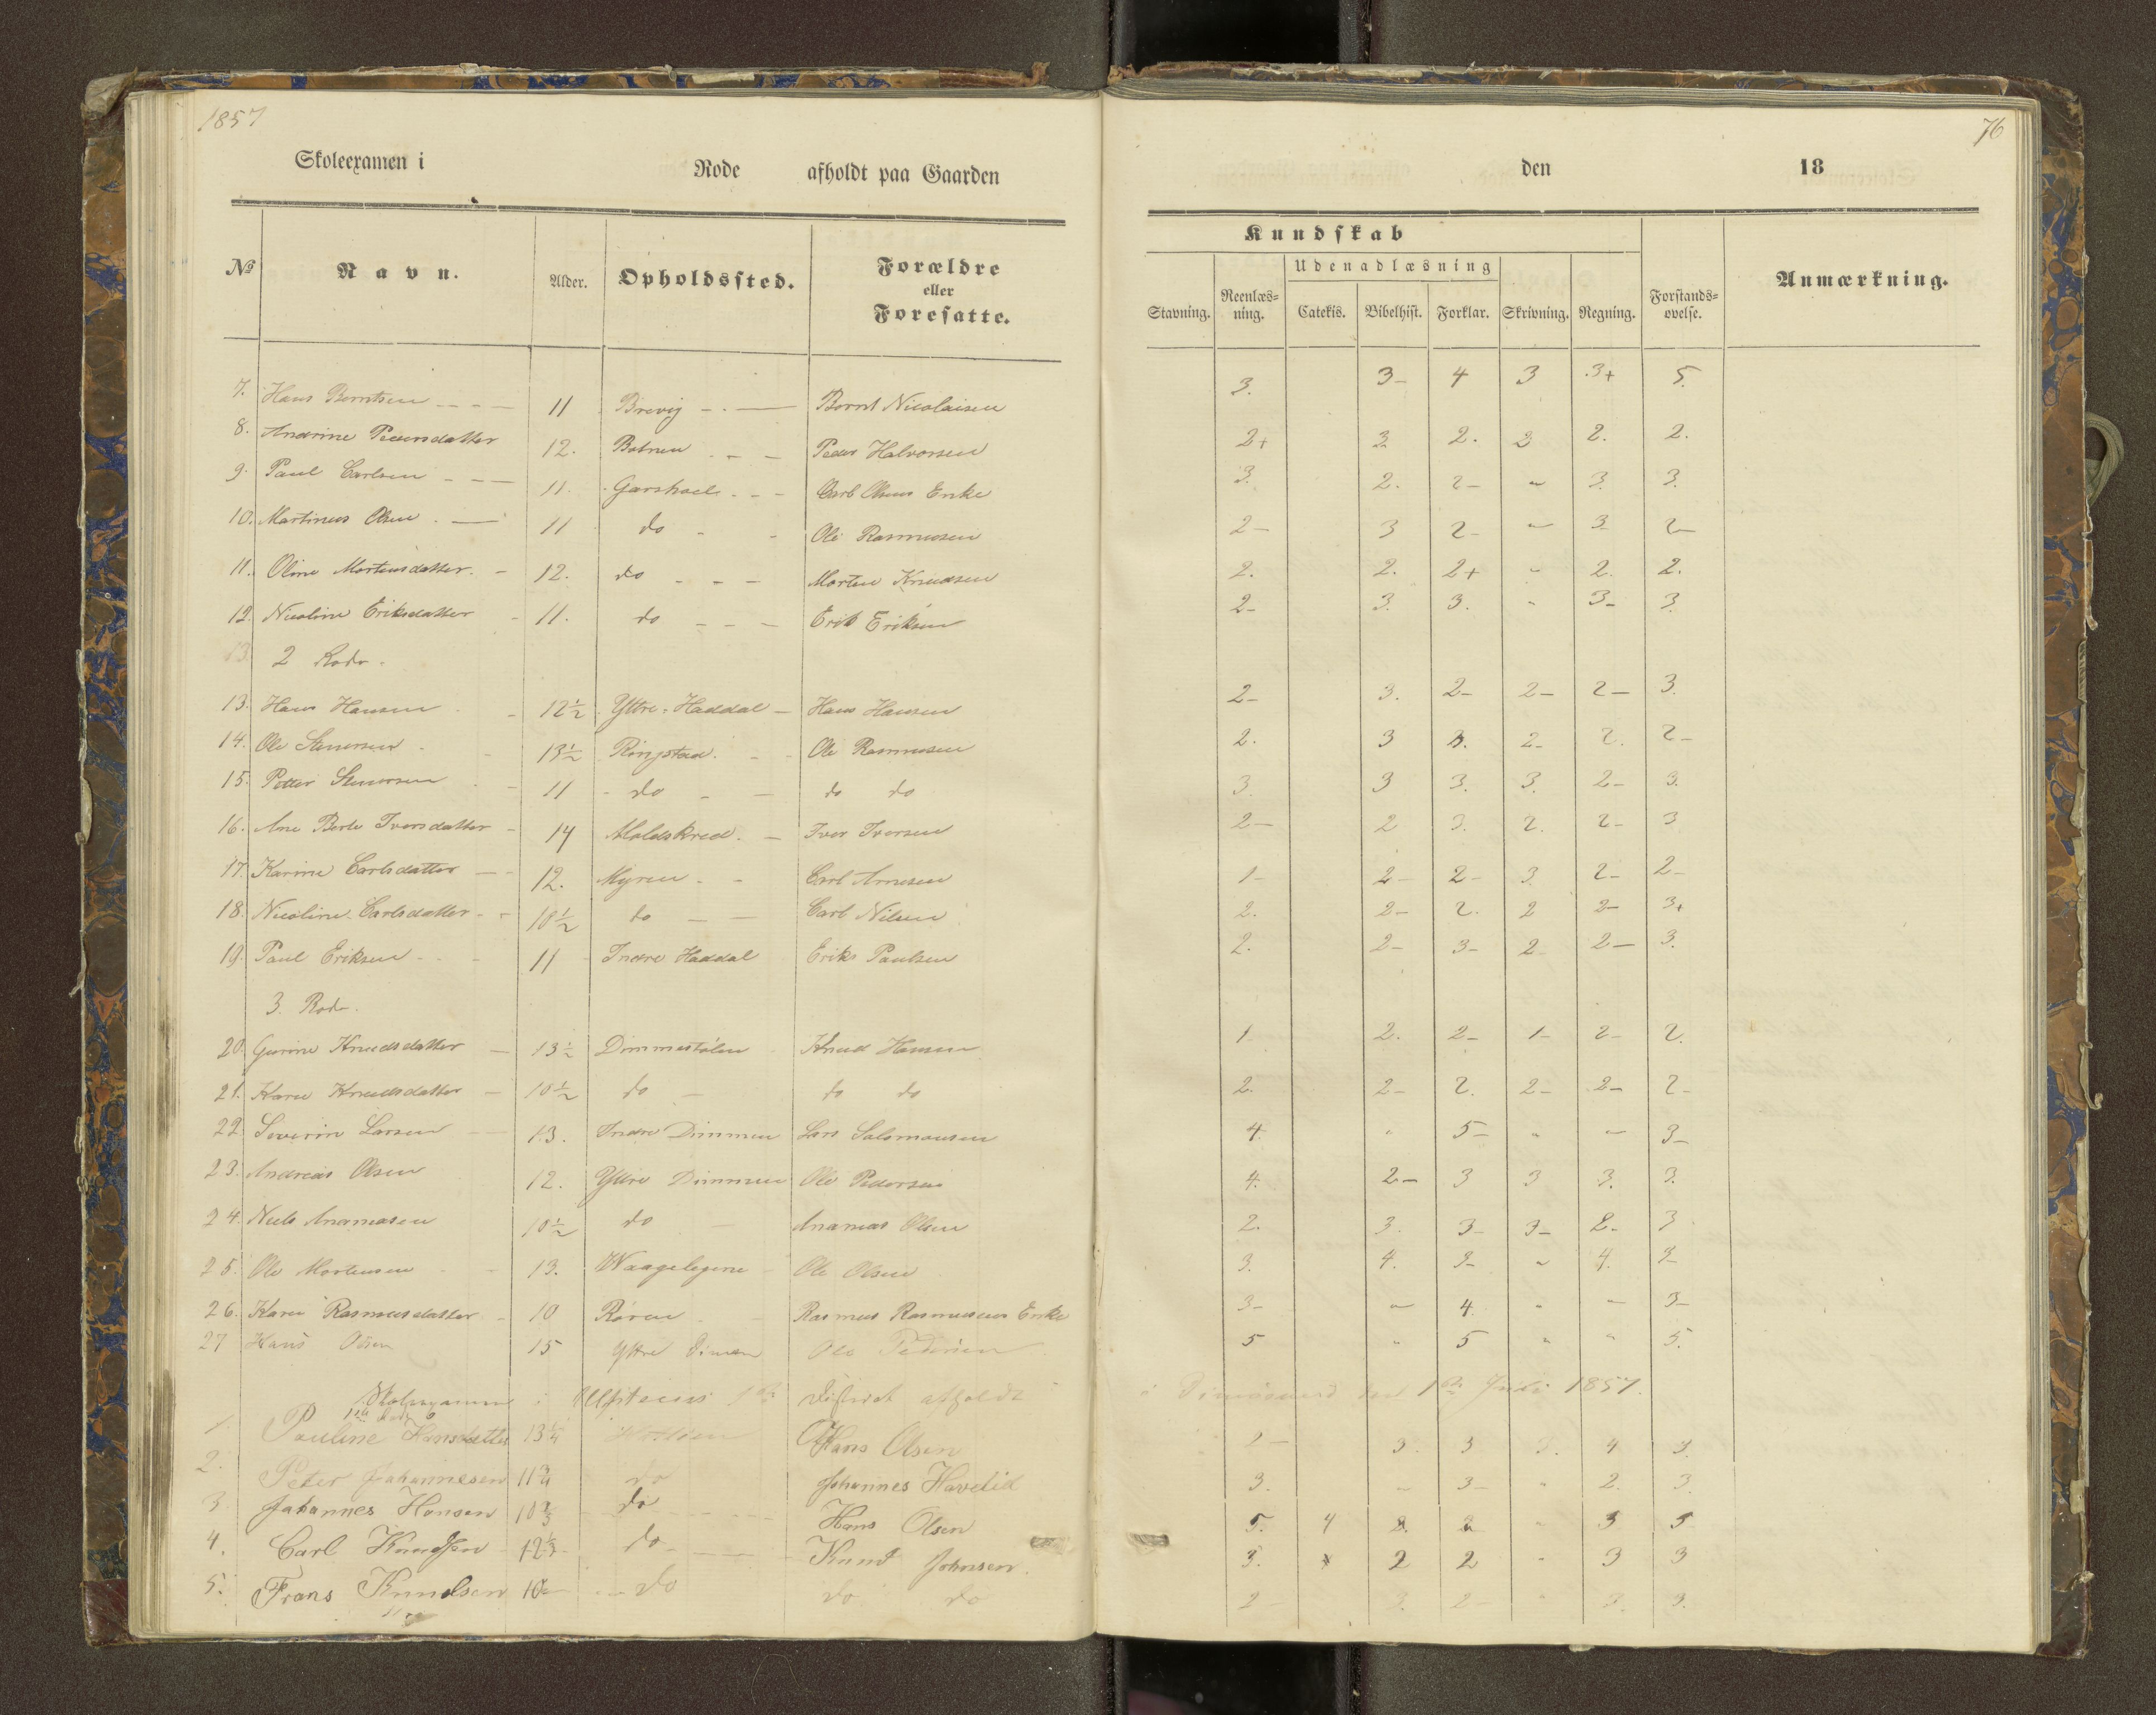 1857
76
Skoleexamen i Rode afholdt paa Gaarden den 18
No Navn. Alder. Opholdssted. Forældre eller Foresatte. Kundskab
Udenadlæsning
Stavning. Reenlæs-ning. Catekis. Bibelhist. Forklar. Skrivning. Regning. Forstands-øvelse. Anmærkning.
7. Hans Berntsen 11 Brevig Bernt Nicolaisen 3. 3- 4 3 3+ 5.
8. Andrine Pedersdatter 12. Botnen Peder Halvorsen 2+ 3 2. 3 2. 2.
9. Paul Carlsen 11. Garshoel Carl Olsens Enke 3. 2. 2- " 3. 3.
10. Martinus Olsen 11 do Ole Rasmussen 2- 3 2- " 3- 2-
11. Oline Mortensdatter. 12. do Morten Knudsen 2. 2. 2+ " 2. 2.
12. Nicoline Eriksdatter 11. do Erik Eriksen 2- 3. 3. " 3- 3.
13 2 Rode.
13. Hans Hansen 12½ Yttre-Haddal Hans Hansen 2- 3. 2- 2- 2- 3.
14. Ole Stenersen 13½ Ringstad. Ole Rasmussen 2. 3 3. 2- 2. 2-
15. Petter Stenersen 11 do do do 3. 3 3. 3. 2- 3.
16. Ane Berte Iversdatter 14 Maldskred. Iver Iversen 2- 2 3. 2. 2- 3
17. Karine Carlsdatter 12. Myren Carl Arnesen 1- 2- 2- 3. 2- 2-
18. Nicoline Carlsdatter 10½ do Carl Nilsen 2. 2- 2. 2 2- 3+
19. Paul Eriksen 11 Indre Haddal Eriks Paulsen 2. 2- 3- 2- 2- 3.
3. Rode.
20. Gurine Knudsdatter 13½ Dimmestølen Knud Hansen 1- 2. 2- 1- 2- 2.
21. Karen Knudsdatter 10½ do do do 2. 2- 2. 2- 2- 2-
22. Severin Larsen 13. Indre Dimmen Lars Salomansen 4. " 5- " " 3-
23. Andreas Olsen 12. Yttre Dimmen Ole Pedersen 4. 2- 3 3 3. 3.
24. Niels Ananiasen 10½ do Ananias Olsen 2. 3. 3- 3- 2- 3
25. Ole Mortensen 13. Waagelegene Ole Olsen 3. 4. 3- " 4. 3-
26. Karen Rasmusdatter 10 Røren Rasmus Rasmussens Enke 3- " 4. " " 3-
27 Hans Olsen 15 Yttre Dimen Ole Pedersen 5 " 5 " " 5.
Skoleexamen i Ulfsteins 1ste District afholdt i den 1ste Juli 1857.
1ste Rode
1. Pauline Hansdatter 13¼ Hans Olsen 1- 3. 3 3. 4 3.
2. Peter Johannesen 11¾ do Johannes Havelid 3. " 3- " 2. 3.
3 Johannes Hansen do Hans Olsen 5. 4 " 3 5
4. Carl Knudsen do Knud Johnsen. 3. 2 2 " 3 3
5. Frans Knudsen do do do 2- 3. 2- " 3. 3.